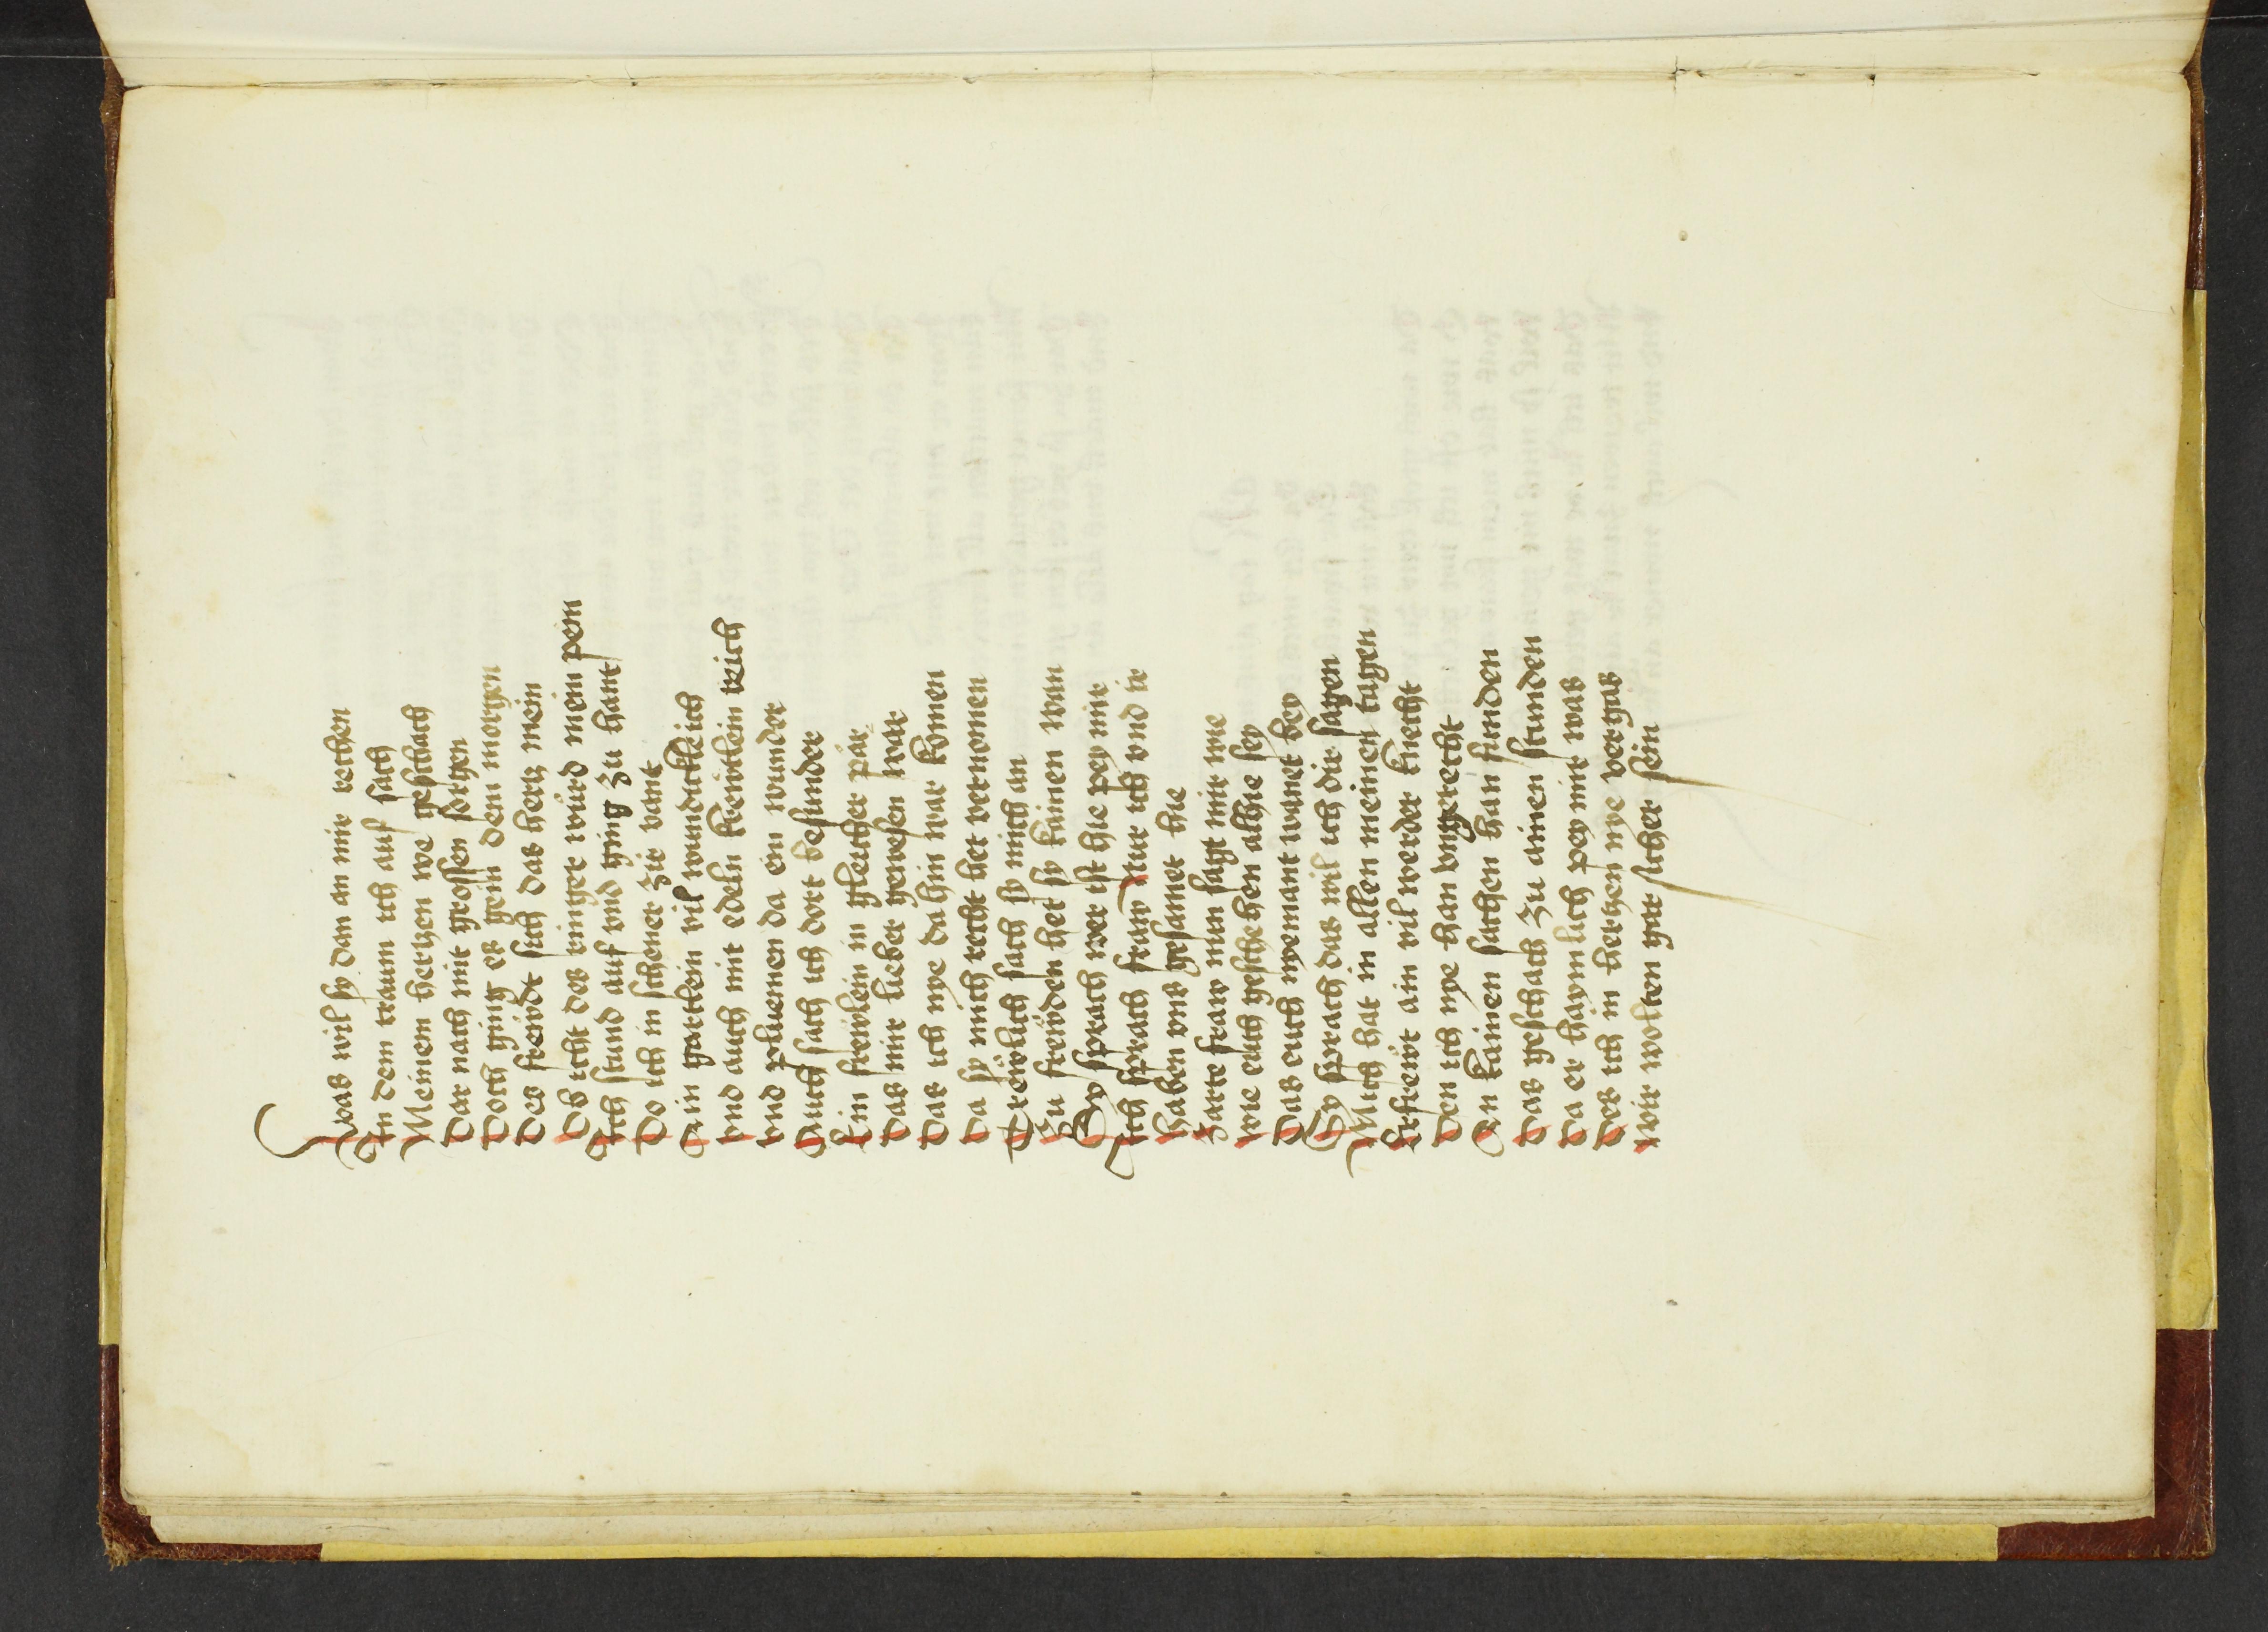 Was wil sy dan an mir rechen
In dem traum ich auf sach
Meinem hertzen we geschach
Dar nach mit grossen sorgen
Doch ging es gein dem morgen
Des frewdt sich das hertz mein
Ob icht des ringer würd mein pein
Ich stund auf vnd ging zu hant
Do ich in schoner zir vant
Ain gartlein vil wundickleich
vnd auch mit edeln krewtlein reich
vnd pluemen da ein wunder
Auch sach ich dort besunder
Ein frewlein in gleicher par
Das mir lieber gewesen war
Das ich nye dahin war komen
Da sy mich recht het vernomen
Trewlich sach sy mich an
Zu frewden het sy kainen wan
Sy sprach wer ist hie pey mir
Ich sprach fraw nur ich vnd ir
Haben vns gesamet hie
Zarte fraw nun sagt mir wie
Wie euch geschehen alhie sey
Das euch nyemant wanet bey
Sy sprach das wil ich dir sagen
Mich hat in allen meinen tagen
Erfrewt ain vil werder knecht
Den ich nye han vngerecht
An kainen sachen kan finden
Das geschach zu ainen stunden
Da er haymlich pey mir was
Des ich in hertzen nye vergas
Wir wolten gar sicher sein